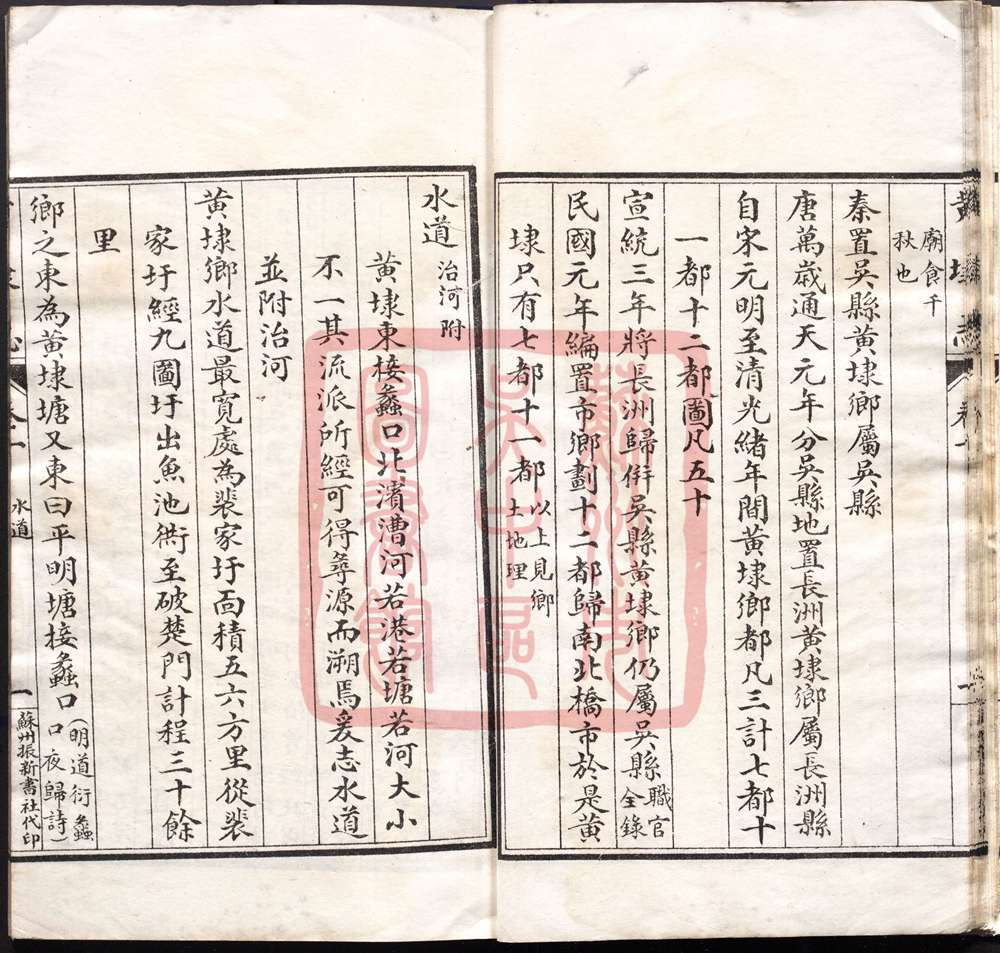 黃埭志
廟食千
秋也
秦置吳縣黃埭鄉屬吳縣
唐萬歲通天元年分吳縣地置長洲黃埭鄉屬長洲縣
自宋元明至清光緒年間黃埭鄉都凡三計七都十
一都十二都圖凡五十
宣統三年將長洲歸倂吳縣黃埭鄉仍屬吳縣職官
全錄
民國元年編置市鄉劃十二都歸南北橋市於是黃
埭只有七都十一都以上見鄉
土地理
水道治河附
黃埭東接蠡口北濱漕河若港若塘若河大小
不一其流派所經可得尋源而溯焉爰志水道
並附治河
黃埭鄉水道最寬處為裴家圩面積五六方里從裴
家圩經九圖圩出魚池衖至破楚門計程三十餘
里
鄉之東為黃埭塘又東曰平明塘接蠡口(明道衍蠡
口夜歸詩)
水道
一
蘇州振新書社代印